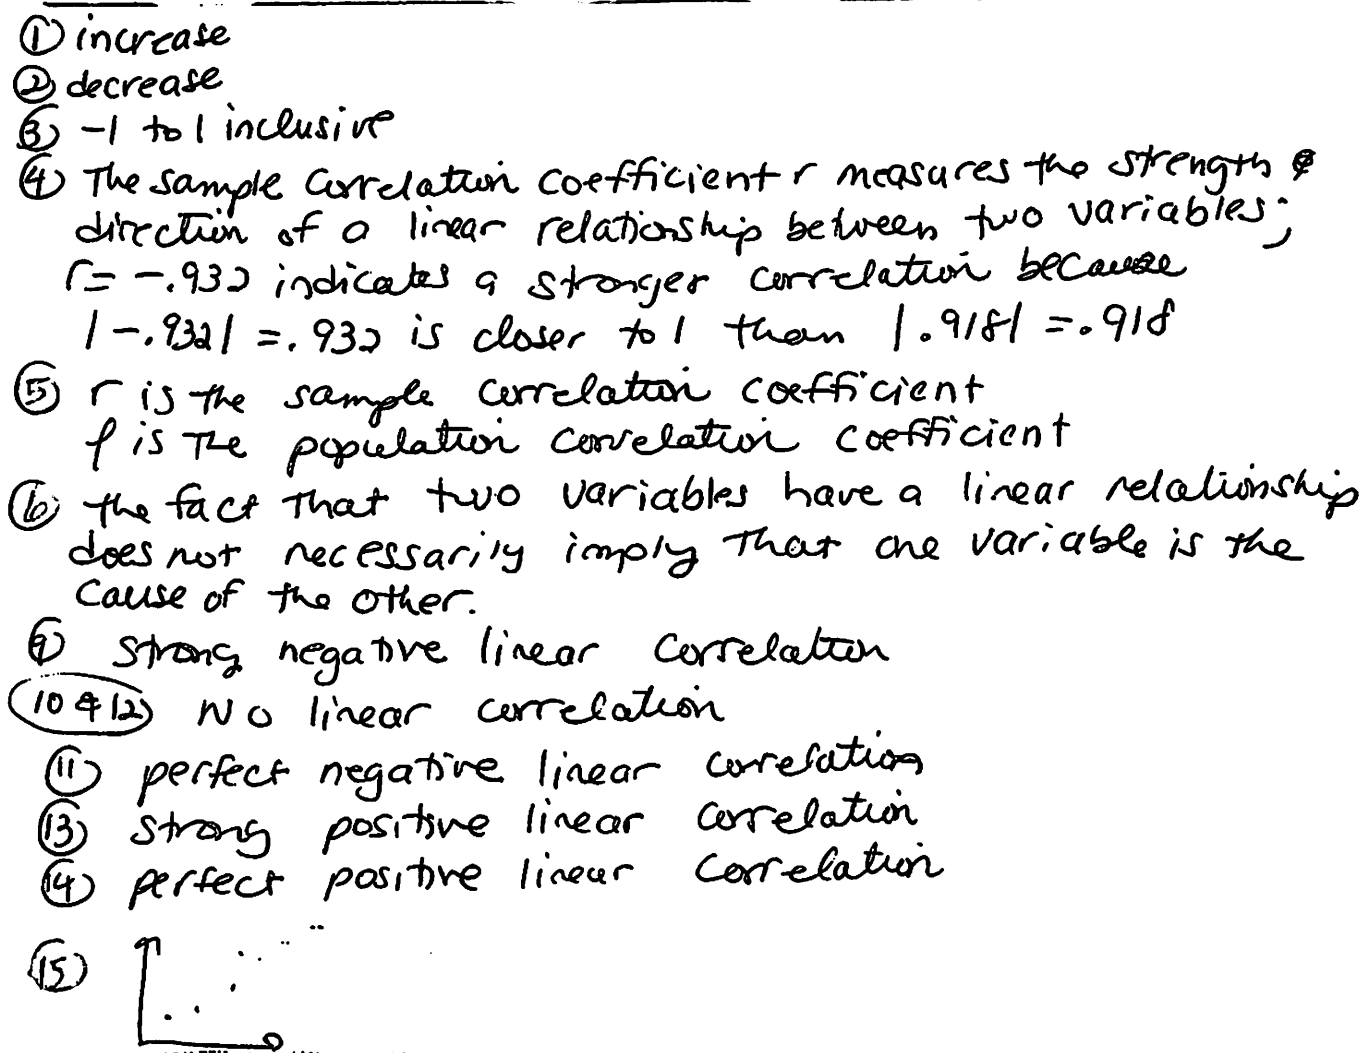 ① increase
② decrease
③ -1 to 1 inclusive
④ The sample correlation coefficient r measures the strength &
direction of a linear relationship between two variables;
r = -.932 indicates a stronger correlation because
|-.932| = .932 is closer to 1 than |.918| = .918
⑤ r is the sample correlation coefficient
ρ is the population correlation coefficient
⑥ the fact that two variables have a linear relationship
does not necessarily imply that one variable is the
cause of the other.
⑨ strong negative linear correlation
10 & 12 No linear correlation
⑪ perfect negative linear correlation
⑬ strong positive linear correlation
⑭ perfect positive linear correlation
⑮